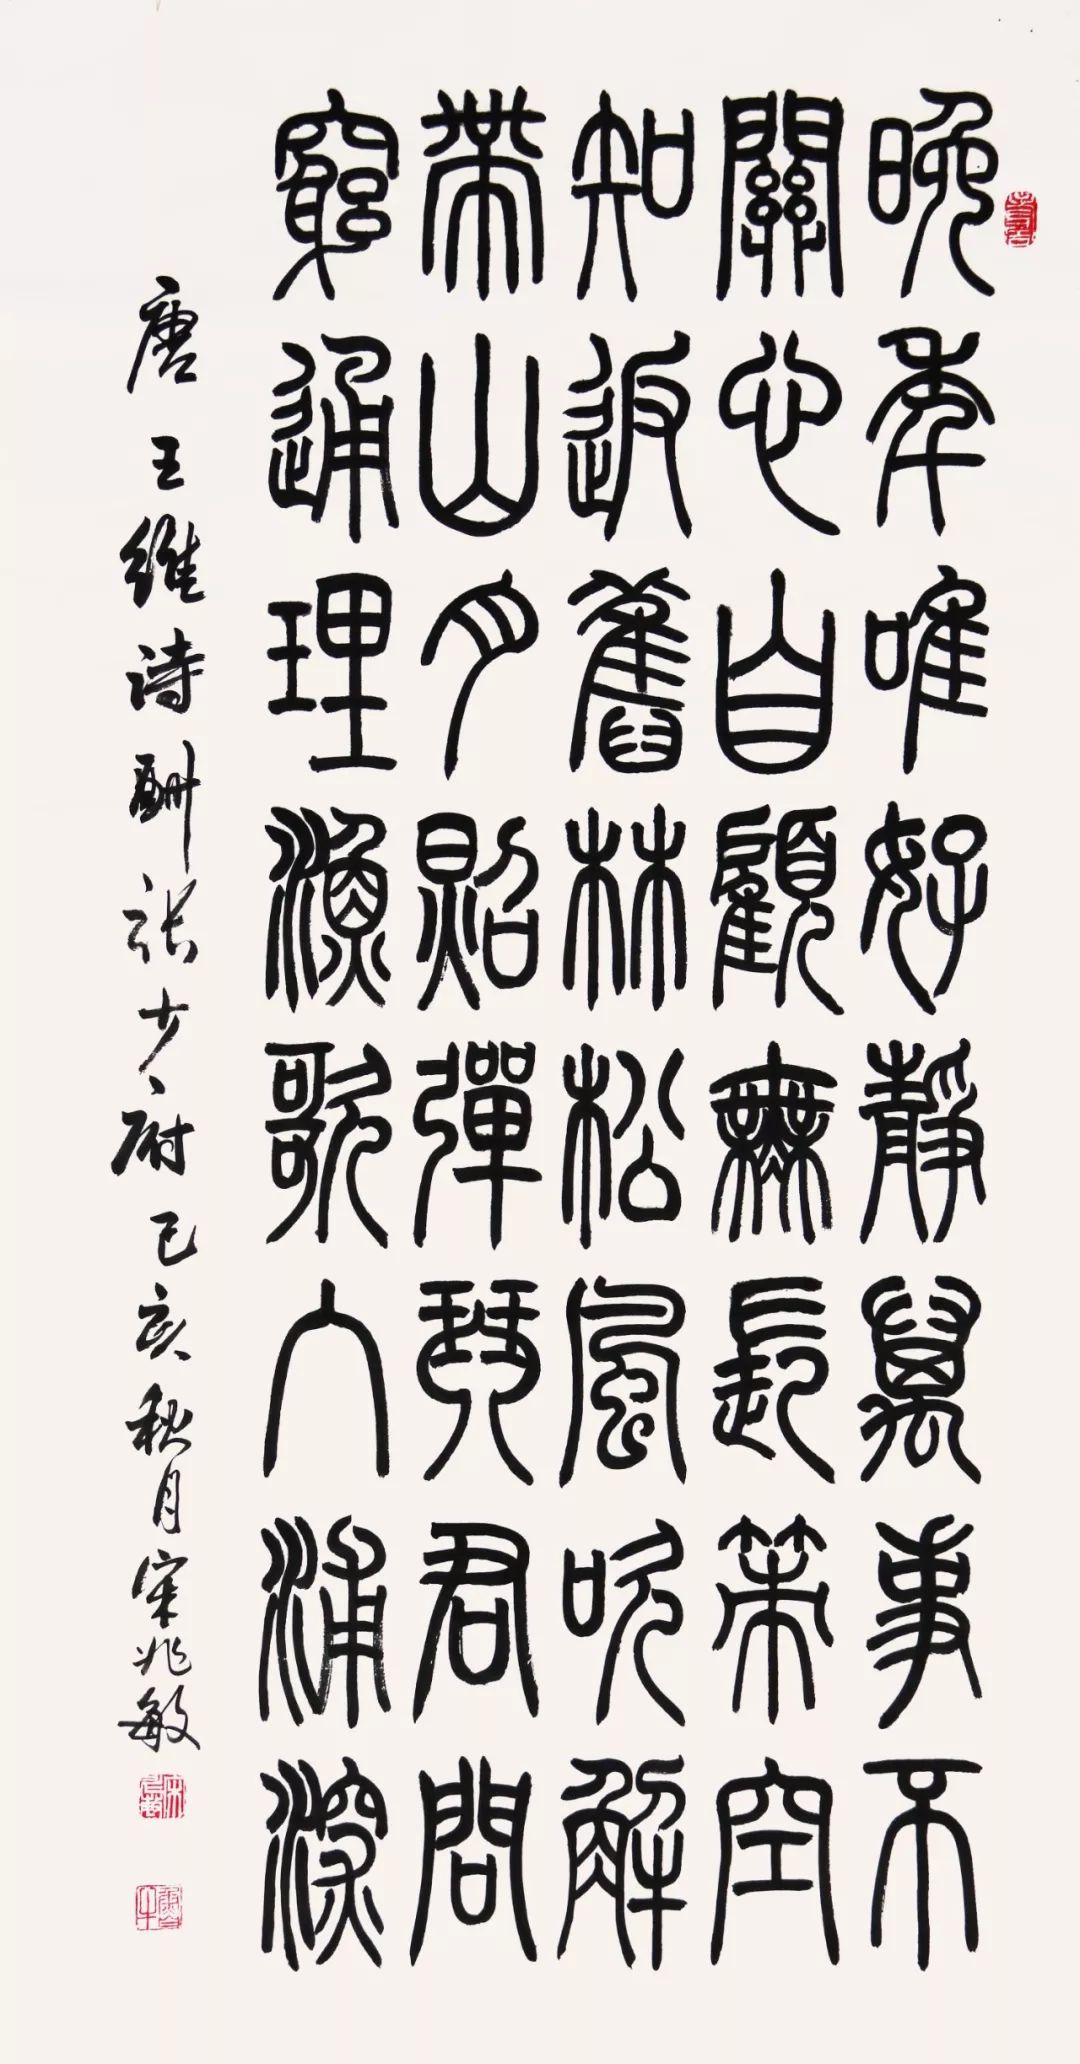 晚年唯好靜萬事不
關心自顧無長策空
知返舊林松風吹解
帶山月照彈琴君問
窮通理漁歌入浦深
唐王維詩酬張少府己亥秋月宋兆敏